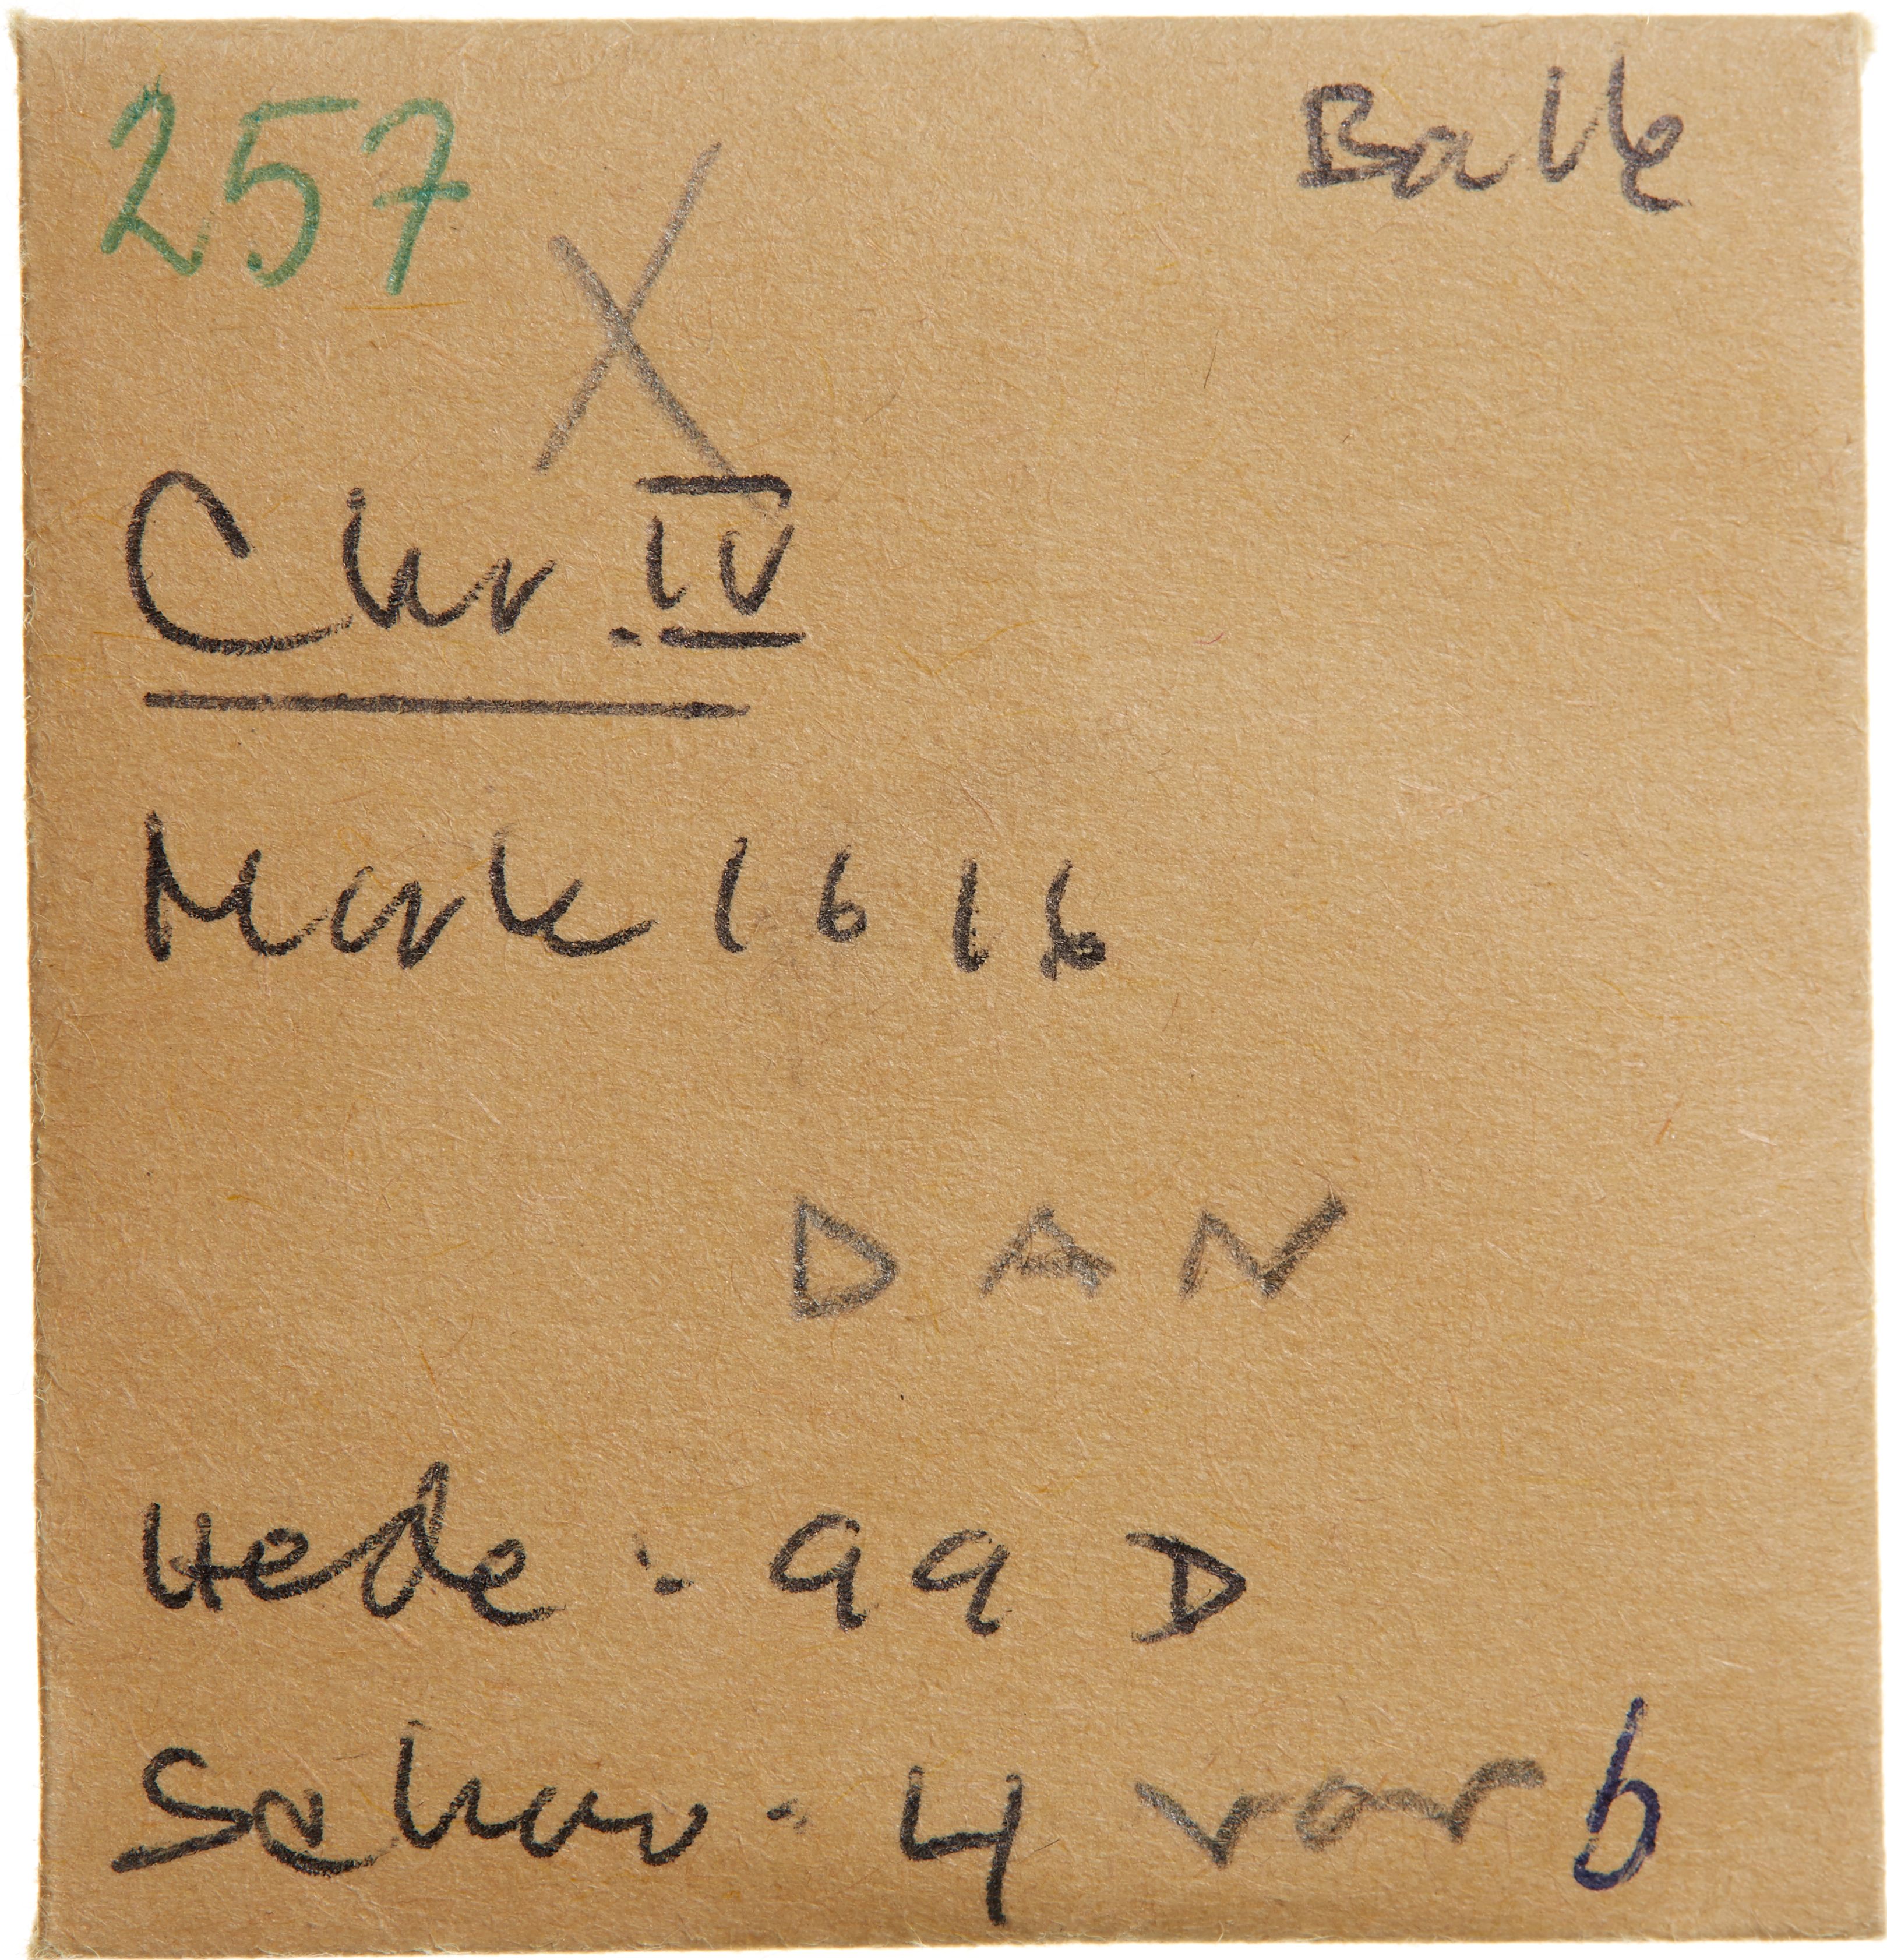 257
Balle
X
Chr. IV
Mark 1616
DAN
Hede: 99 D
Schou. 4 var b